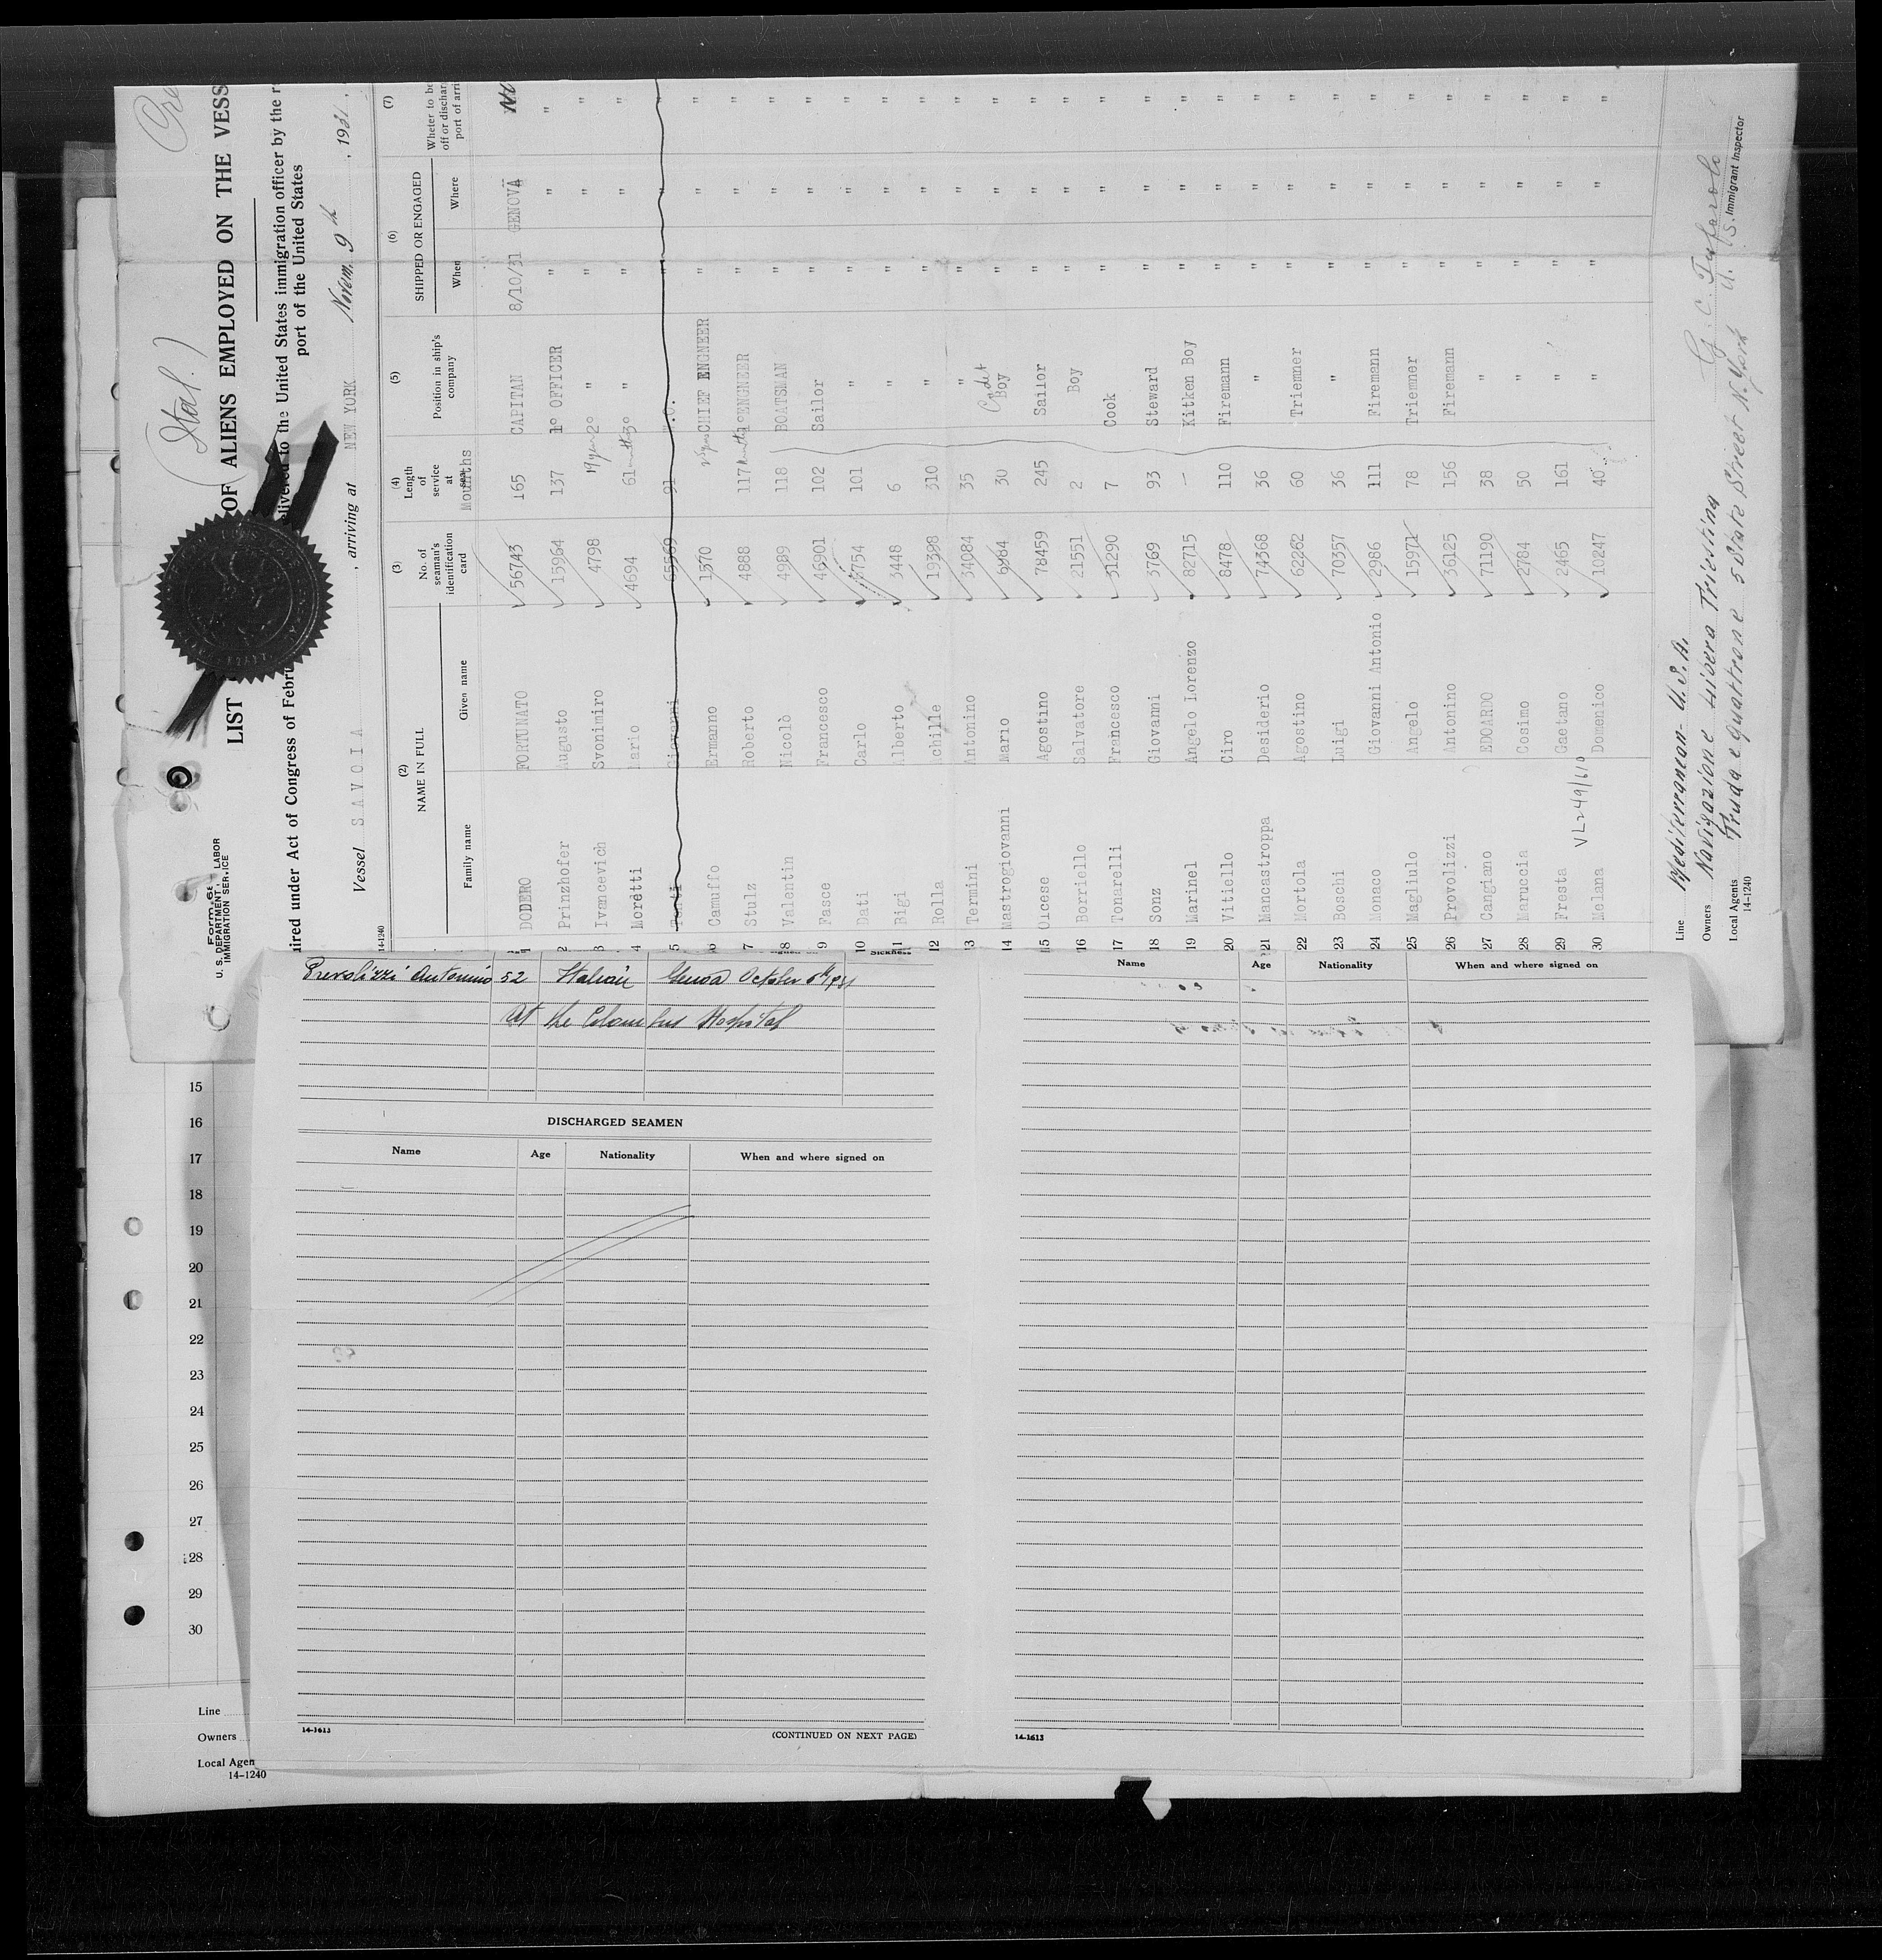 (Ital.)
Form 68
U. S. DEPARTMENT LABOR
IMMIGRATION SERVICE
LIST OF ALIENS EMPLOYED ON THE VESS
uired under Act of Congress of Febru delivered to the United States immigration officer by the r
port of the United States
Vessel SAVOIA , arriving at NEW YORK Novem. 9th , 1931.
14-1240
(2) (3) (4) (5) (6) (7)
NAME IN FULL
Family name Given name
No. of seaman's identification card
Length of service at sea
Mounths
Position in ship's company
SHIPPED OR ENGAGED
When Where
Wheter to be
off or dischar
port of arri
1 DODERO FORTUNATO 56743 165 CAPITAN 8/10/31 GENOVA
2 Prinzhofer Augusto 15964 137 1º OFFICER " " "
3 Ivancevich Svonimiro 4798 19 years 2º " " " "
4 Morètti Mario 4694 61 3º " " " "
5 Giovanni 65569 91 " " "
6 Camuffo Ermanno 1370 CHIEF ENGNEER " " "
7 Stulz Roberto 4888 117 ENGINEER " " "
8 Valentin Nicolò 4989 118 BOATSMAN " " "
9 Fasce Francesco 46901 102 Sailor " " "
10 Dati Carlo 101 " " " "
11 Bigi Alberto 3448 6 " " " "
12 Rolla Achille 19398 310 " " " "
13 Termini Antonino 34084 35 " " " "
14 Mastrogiovanni Mario 6984 30 Cadet Boy " " "
15 Olcese Agostino 78459 245 Sailor " " "
16 Borriello Salvatore 21551 2 Boy " " "
17 Tonarelli Francesco 31290 7 Cook " " "
18 Sonz Giovanni 3769 93 Steward " " "
19 Marinel Angelo Lorenzo 82715 — Kitken Boy " " "
20 Vitiello Ciro 8478 110 Firemann " " "
21 Mancastroppa Desiderio 74368 36 " " " "
22 Mortola Agostino 62262 60 Triemner " " "
23 Boschi Luigi 70357 36 " " " "
24 Monaco Giovanni Antonio 2986 111 Firemann " " "
25 Magliulo Angelo 15971 78 Triemner " " "
26 Provolizzi Antonino 36125 156 Firemann " " "
27 Cangiano EDOARDO 71190 38 " " " "
28 Maruccia Cosimo 2784 50 " " " "
29 Fresta Gaetano 2465 161 " " " "
30 Melana Domenico 10247 40 " " " "
VL249/610
Line Mediterranean - U.S.A.
Owners Navigazione Libera Triestina
Local Agents Truda e Quattrone 5 State Street N. York
14-1240
U. S. Immigrant Inspector
Sickness
Prevolizzi Antonino 52 Italian Genoa October 8th 1931
At the Columbus Hospital
DISCHARGED SEAMEN
Name Age Nationality When and where signed on
14-1613
(CONTINUED ON NEXT PAGE)
Name Age Nationality When and where signed on
14-1613
15
16
17
18
19
20
21
22
23
24
25
26
27
28
29
30
Line
Owners
Local Agen
14-1240